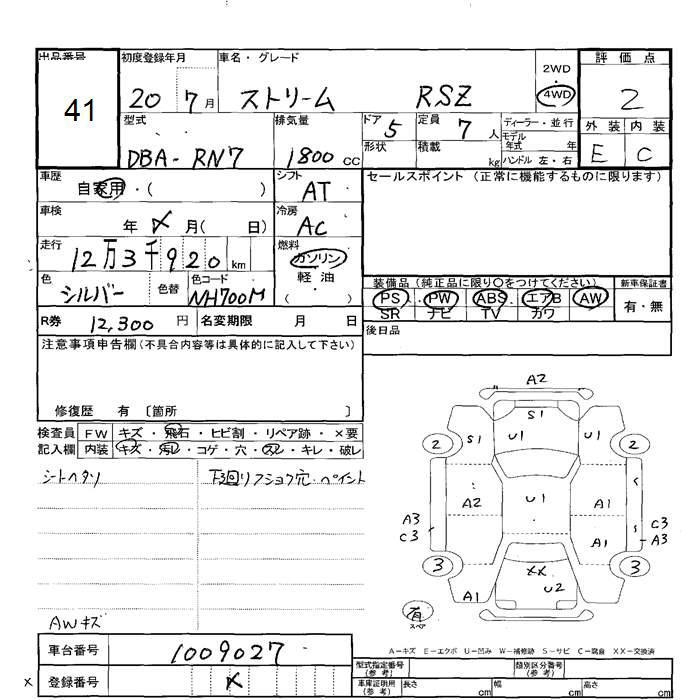 出品番号 初度登録年月 車名・グレード 2WD 評価点
41 20 7月 ストリーム RSZ 4WD 2
型式 排気量 ドア 5 定員 7 人 ディーラー・並行 外装 内装
モデル年式 年
DBA-RN7 1800 cc 形状 積載 kg ハンドル 左・右 E C
車歴 自家用・( ) シフト AT セールスポイント (正常に機能するものに限ります)
車検 年 メ 月( 日) 冷房 AC
走行 12万3千920 km 燃料 ガソリン・軽油・( )
色 シルバー 色替 色コード NH700M
装備品 (純正品に限り○をつけてください) 新車保証書
PS・PW・ABS・エアB AW 有・無
SR ナビ TV カワ
R券 12,300 円 名変期限 月 日 後日品
注意事項申告欄(不具合内容等は具体的に記入して下さい)
修復歴 有 〔箇所 〕
検査員 FW キズ・飛石・ヒビ割・リペア跡・×要
記入欄 内装 キズ・汚レ・コゲ・穴・スレ・キレ・破レ
シートヘタリ 下廻リフショク穴・ペイント
AWキズ
A2
S1
S1 U1 U1
2 2
A2 U1 A1
A3 C3
A3
C3 A1
3 3
XX
A1 U2
有
スペア
A-キズ E-エクボ U-凹み W-補修跡 S-サビ C-腐食 XX-交換済
車台番号 1009027
型式指定番号(参考) 類別区分番号(参考)
× 登録番号 メ
車庫証明用(参考) 長さ cm 幅 cm 高さ cm